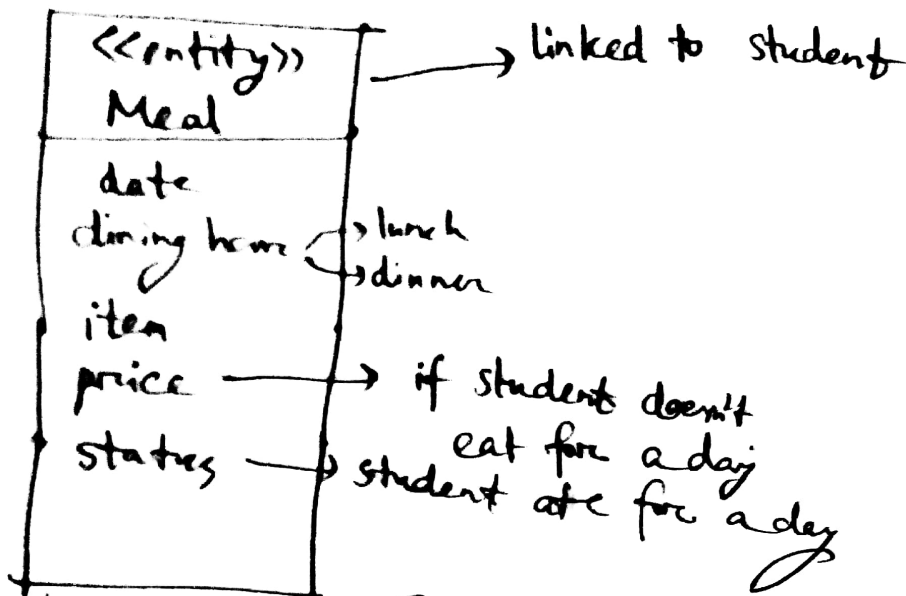 <<entity>>
Meal
linked to student
date
dining hour
lunch
dinner
item
price
if student doesn't
eat for a day
status
student ate for a day